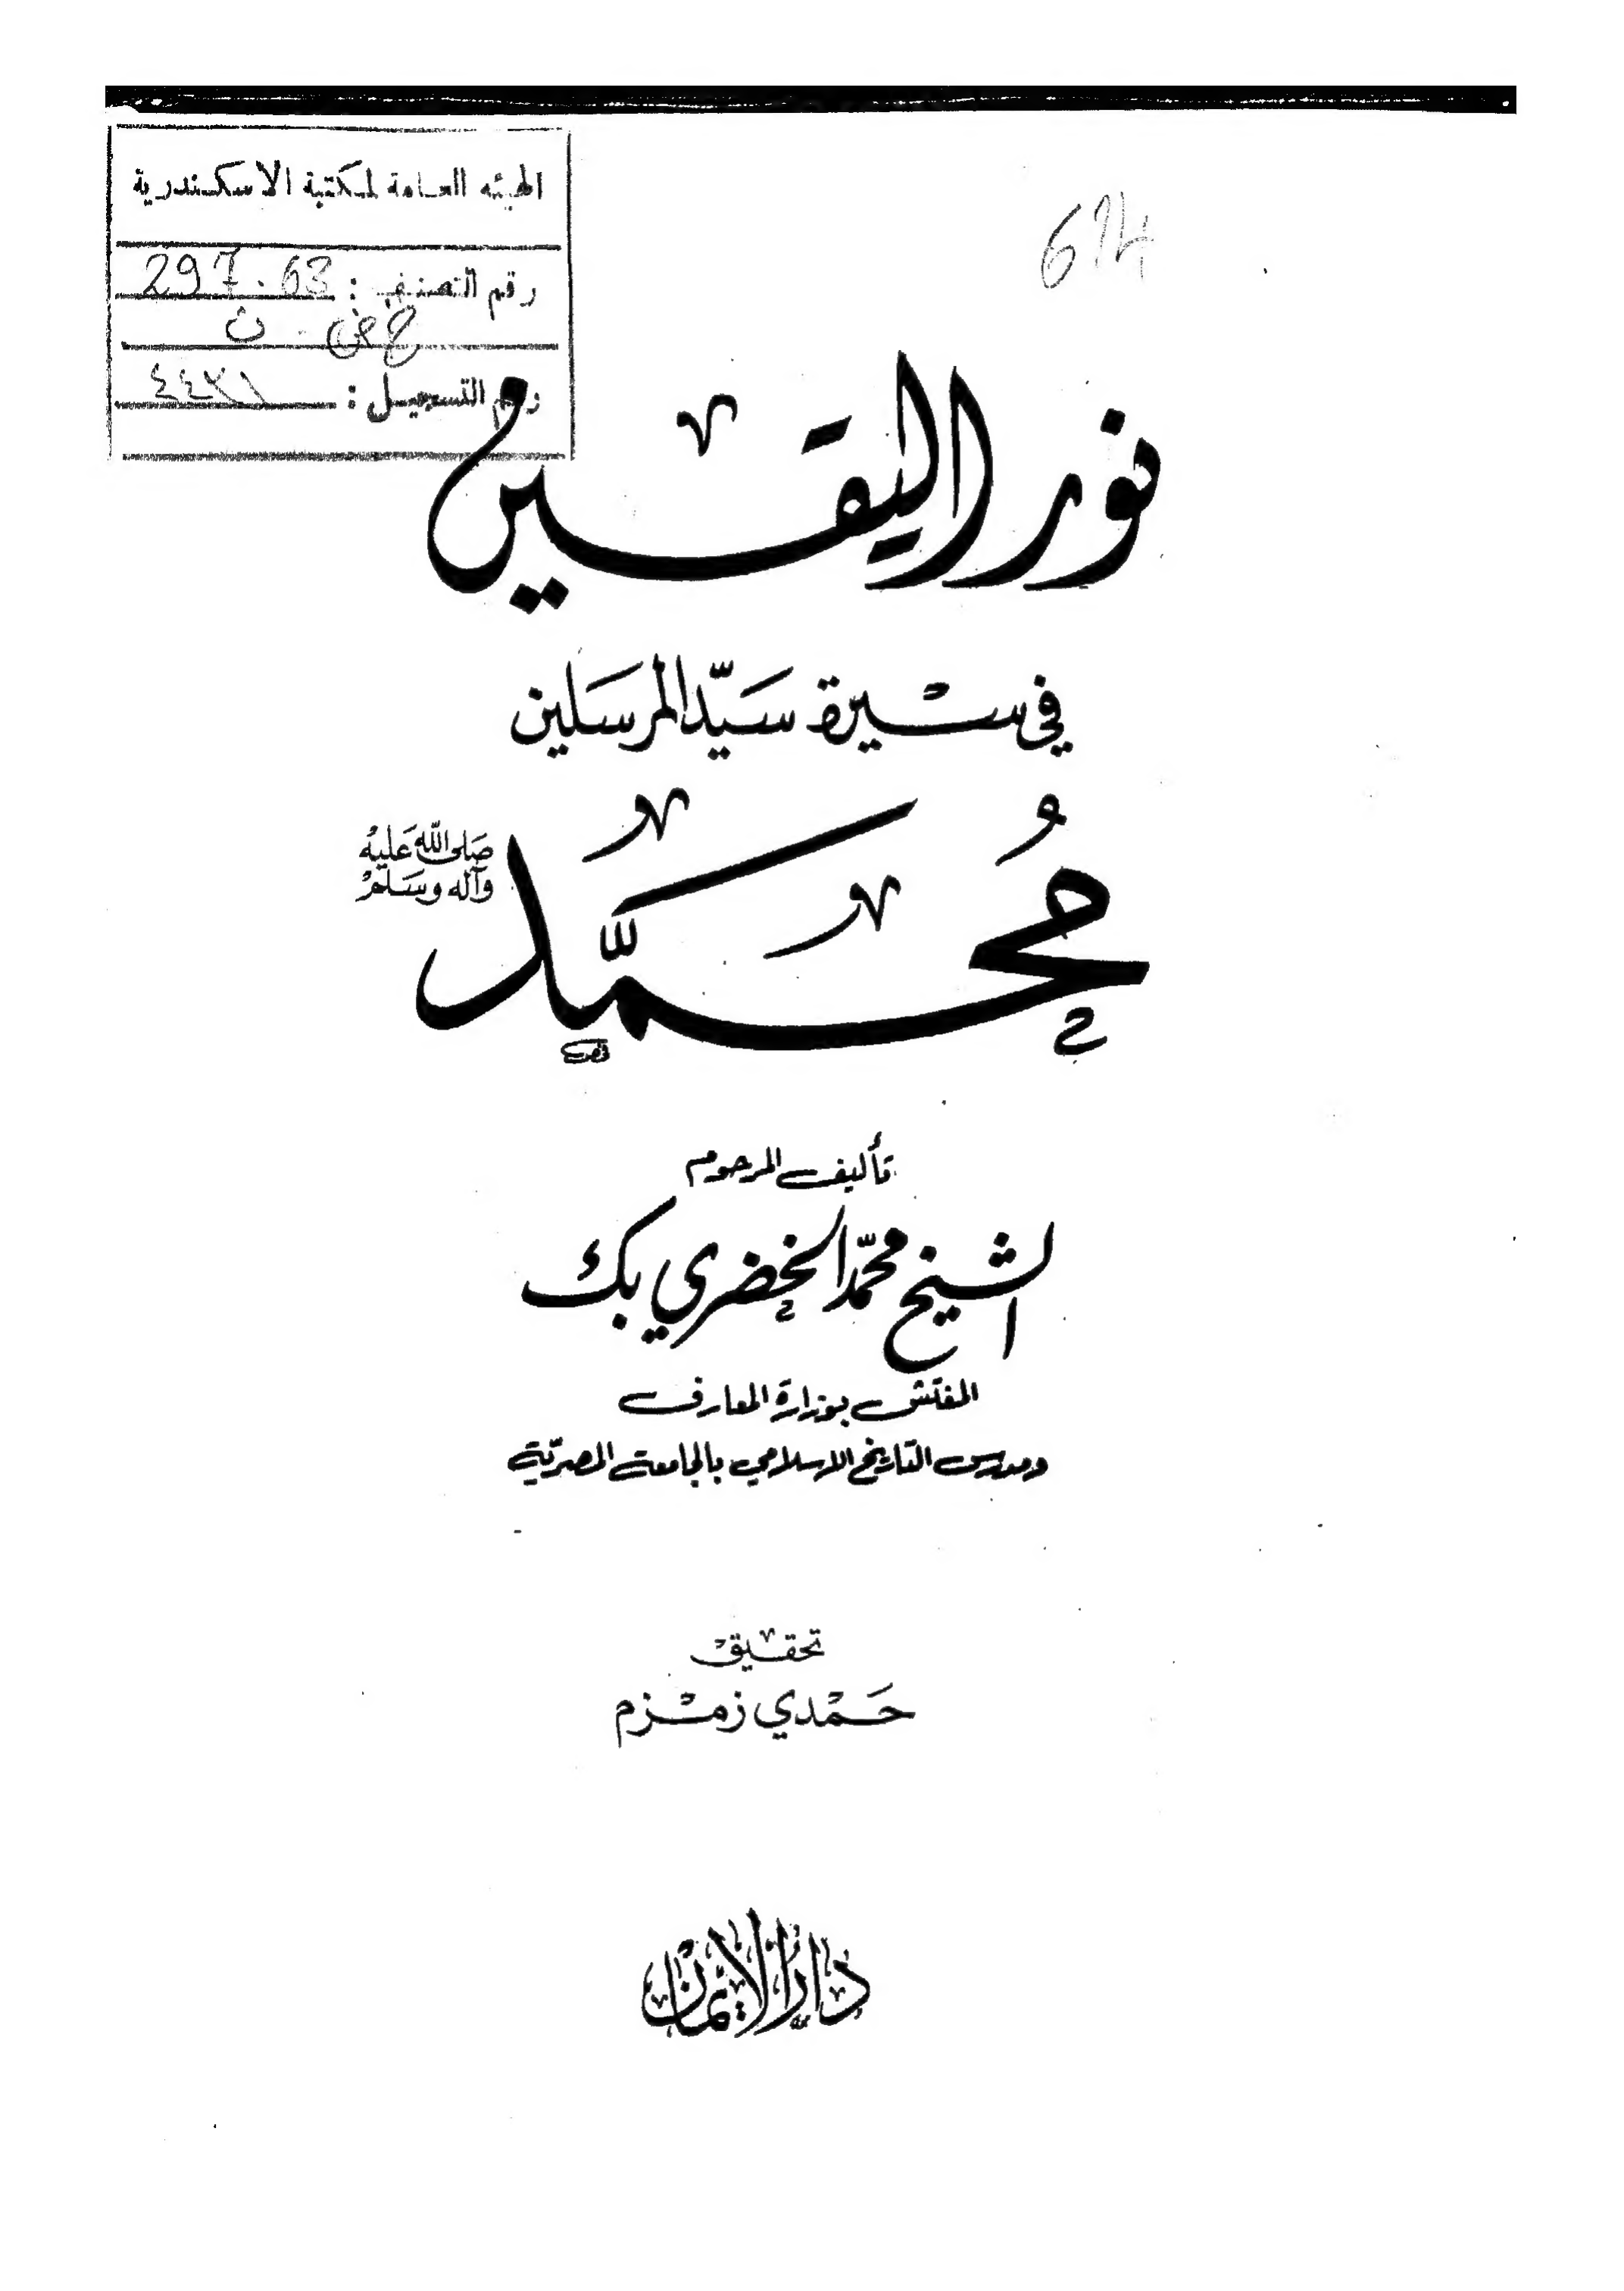 الهيئه العامة لمكتبة الاسكندرية
رقم التصنيف : 297.63
خ ض . ن
رقم التسجيل :
نور اليقين
في سيرة سيّد المرسلين
مُحمّد
صَلى اللّه عَليْه
وآله وسَلمْ
تأليف المرحوم
الشيخ محمّد الخضري بك
المفتش بوزارة المعارف
ومدرس التاريخ الاسلامي بالجامعة المصريّة
تحقيق
حَمْدي زمْزم
دار الإيمان